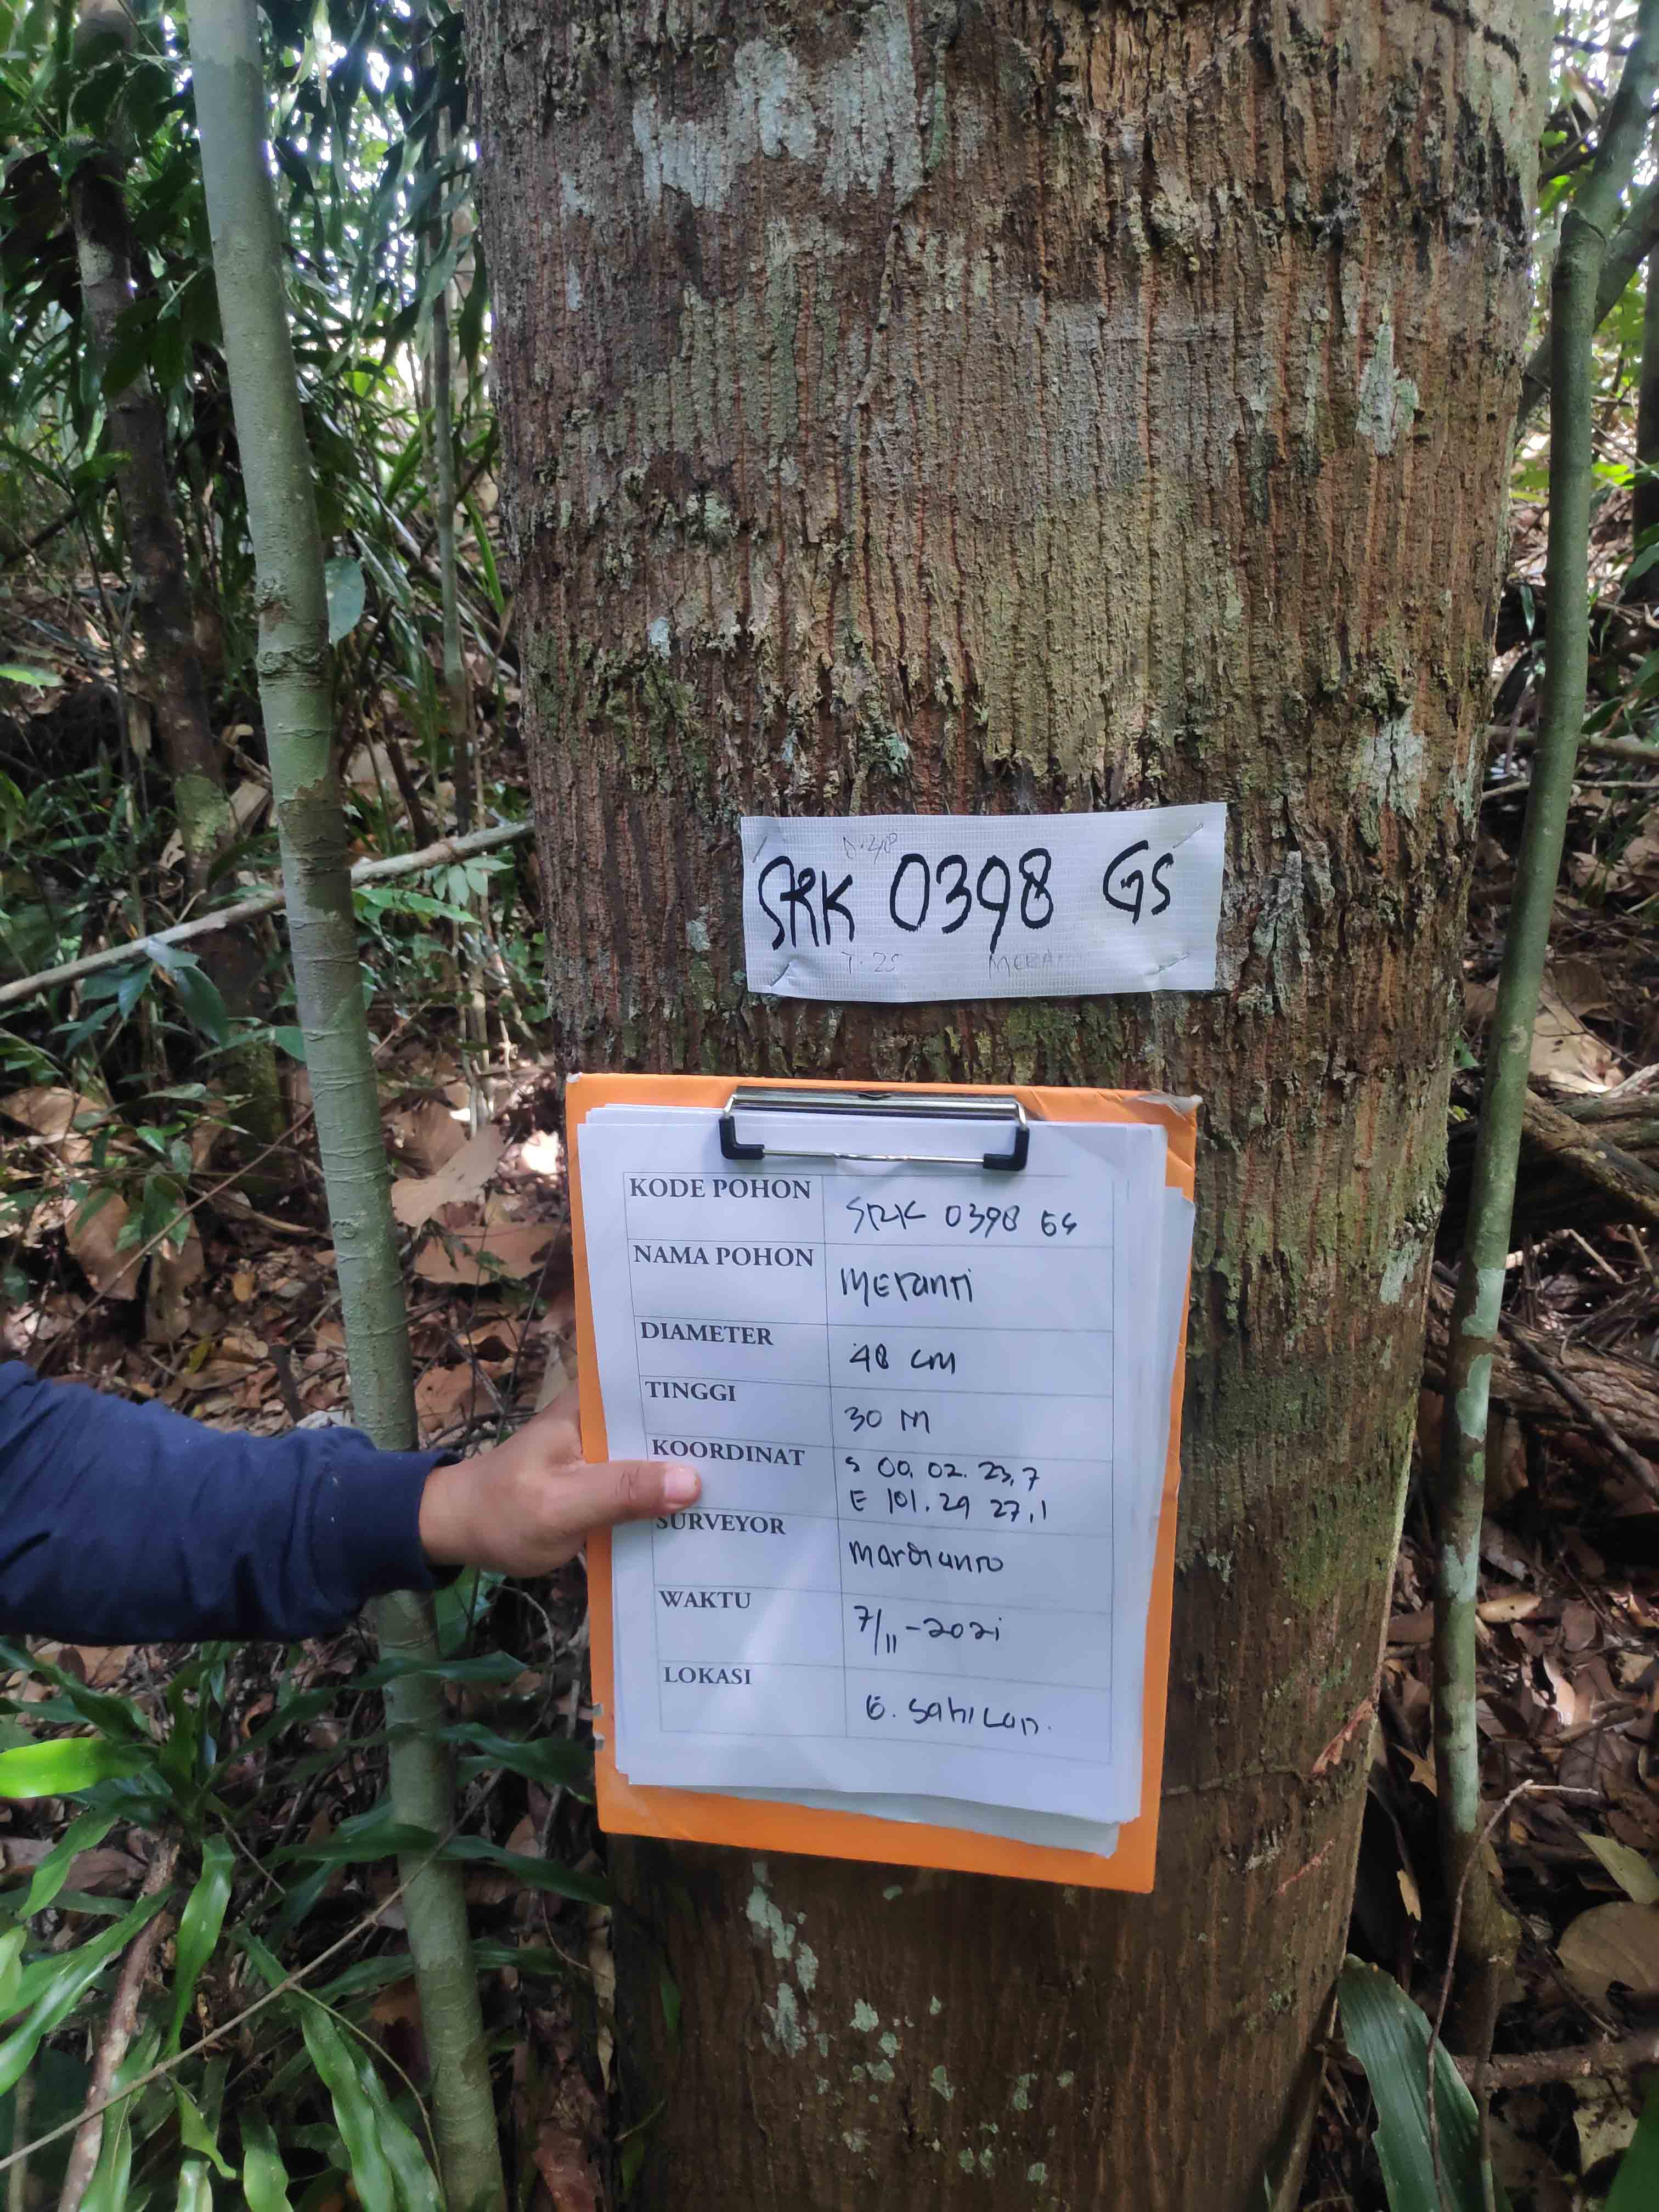 D. 48
SRK 0398 GS
T. 25 MERA
KODE POHON SRK 0398 GS
NAMA POHON Meranti
DIAMETER 48 cm
TINGGI 30 M
KOORDINAT S 00. 02. 23,7
E 101. 29 27,1
SURVEYOR Mardianto
WAKTU 7/11-2021
LOKASI G. Sahilan.